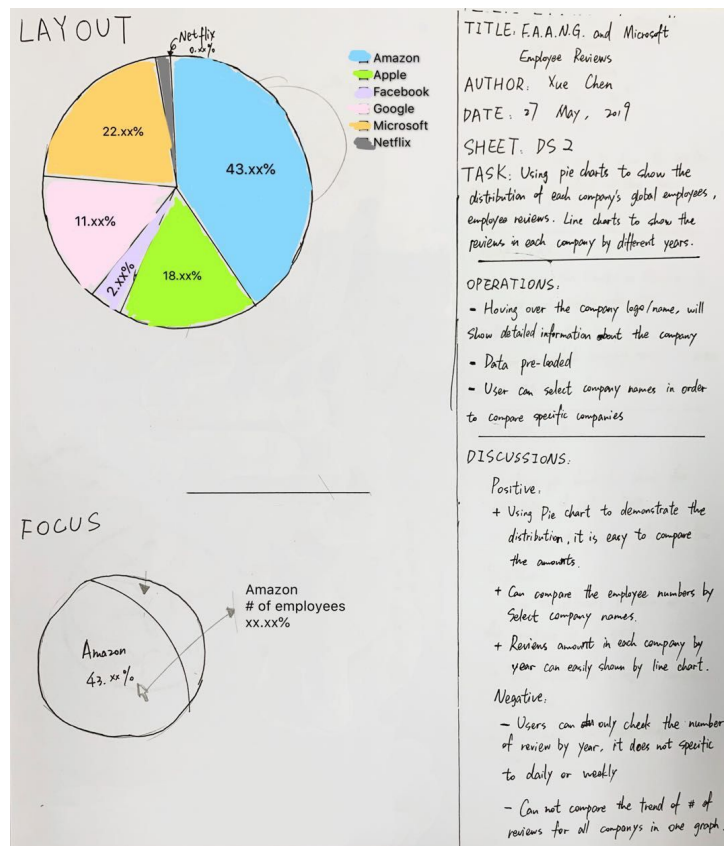 LAYOUT
Netflix
0.xx%
Amazon
Apple
Facebook
Google
Microsoft
Netflix
22.xx%
43.xx%
11.xx%
2.xx%
18.xx%
FOCUS
Amazon
43.xx%
Amazon
# of employees
xx.xx%
TITLE: F.A.A.N.G. and Microsoft
Employee Reviews
AUTHOR: Xue Chen
DATE: 27 May, 2019
SHEET: DS 2
TASK: Using pie charts to show the
distribution of each company's global employees,
employee reviews. Line charts to show the
reviews in each company by different years.
OPERATIONS:
- Hoving over the company logo/name, will
show detailed information about the company
- Data pre-loaded
- User can select company names in order
to compare specific companies
DISCUSSIONS:
Positive:
+ Using Pie chart to demonstrate the
distribution, it is easy to compare
the amounts.
+ Can compare the employee numbers by
Select company names.
+ Reviews amount in each company by
year can easily shown by line chart.
Negative:
- Users can only check the number
of review by year, it does not specific
to daily or weekly
- Can not compare the trend of # of
reviews for all companys in one graph.